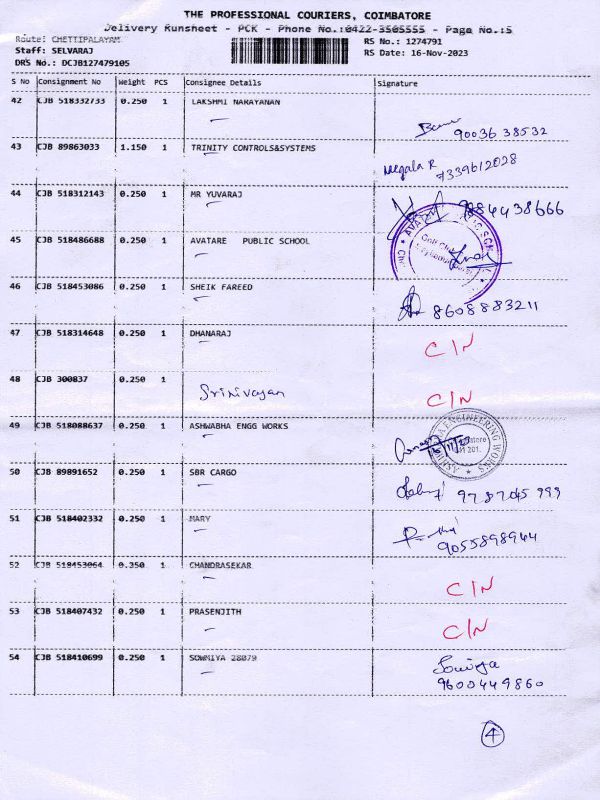 THE PROFESSIONAL COURIERS, COIMBATORE
Delivery Runsheet - PCK - Phone No.:0422-3505555 - Page No.:5
Route: CHETTIPALAYAM RS No.: 1274791
Staff: SELVARAJ RS Date: 16-Nov-2023
DRS No.: DCJB127479105
S No Consignment No Weight PCS Consignee Details Signature
42 CJB 518332733 0.250 1 LAKSHMI NARAYANAN
90036 38532
43 CJB 89863033 1.150 1 TRINITY CONTROLS&SYSTEMS
Megala R 7339612028
44 CJB 518312143 0.250 1 MR YUVARAJ
9884438666
45 CJB 518486688 0.250 1 AVATARE PUBLIC SCHOOL
46 CJB 518453086 0.250 1 SHEIK FAREED
8608883211
47 CJB 518314648 0.250 1 DHANARAJ
C/N
48 CJB 300837 0.250 1 Srinivasan
C/N
49 CJB 518088637 0.250 1 ASHWABHA ENGG WORKS
ENGINEERING WORKS
50 CJB 89891652 0.250 1 SBR CARGO
9787045999
51 CJB 518402332 0.250 1 MARY
9055898944
52 CJB 518453064 0.350 1 CHANDRASEKAR
C/N
53 CJB 518407432 0.250 1 PRASENJITH
C/N
54 CJB 518410699 0.250 1 SOWMIYA 28079
Sowiya
9600449860
4